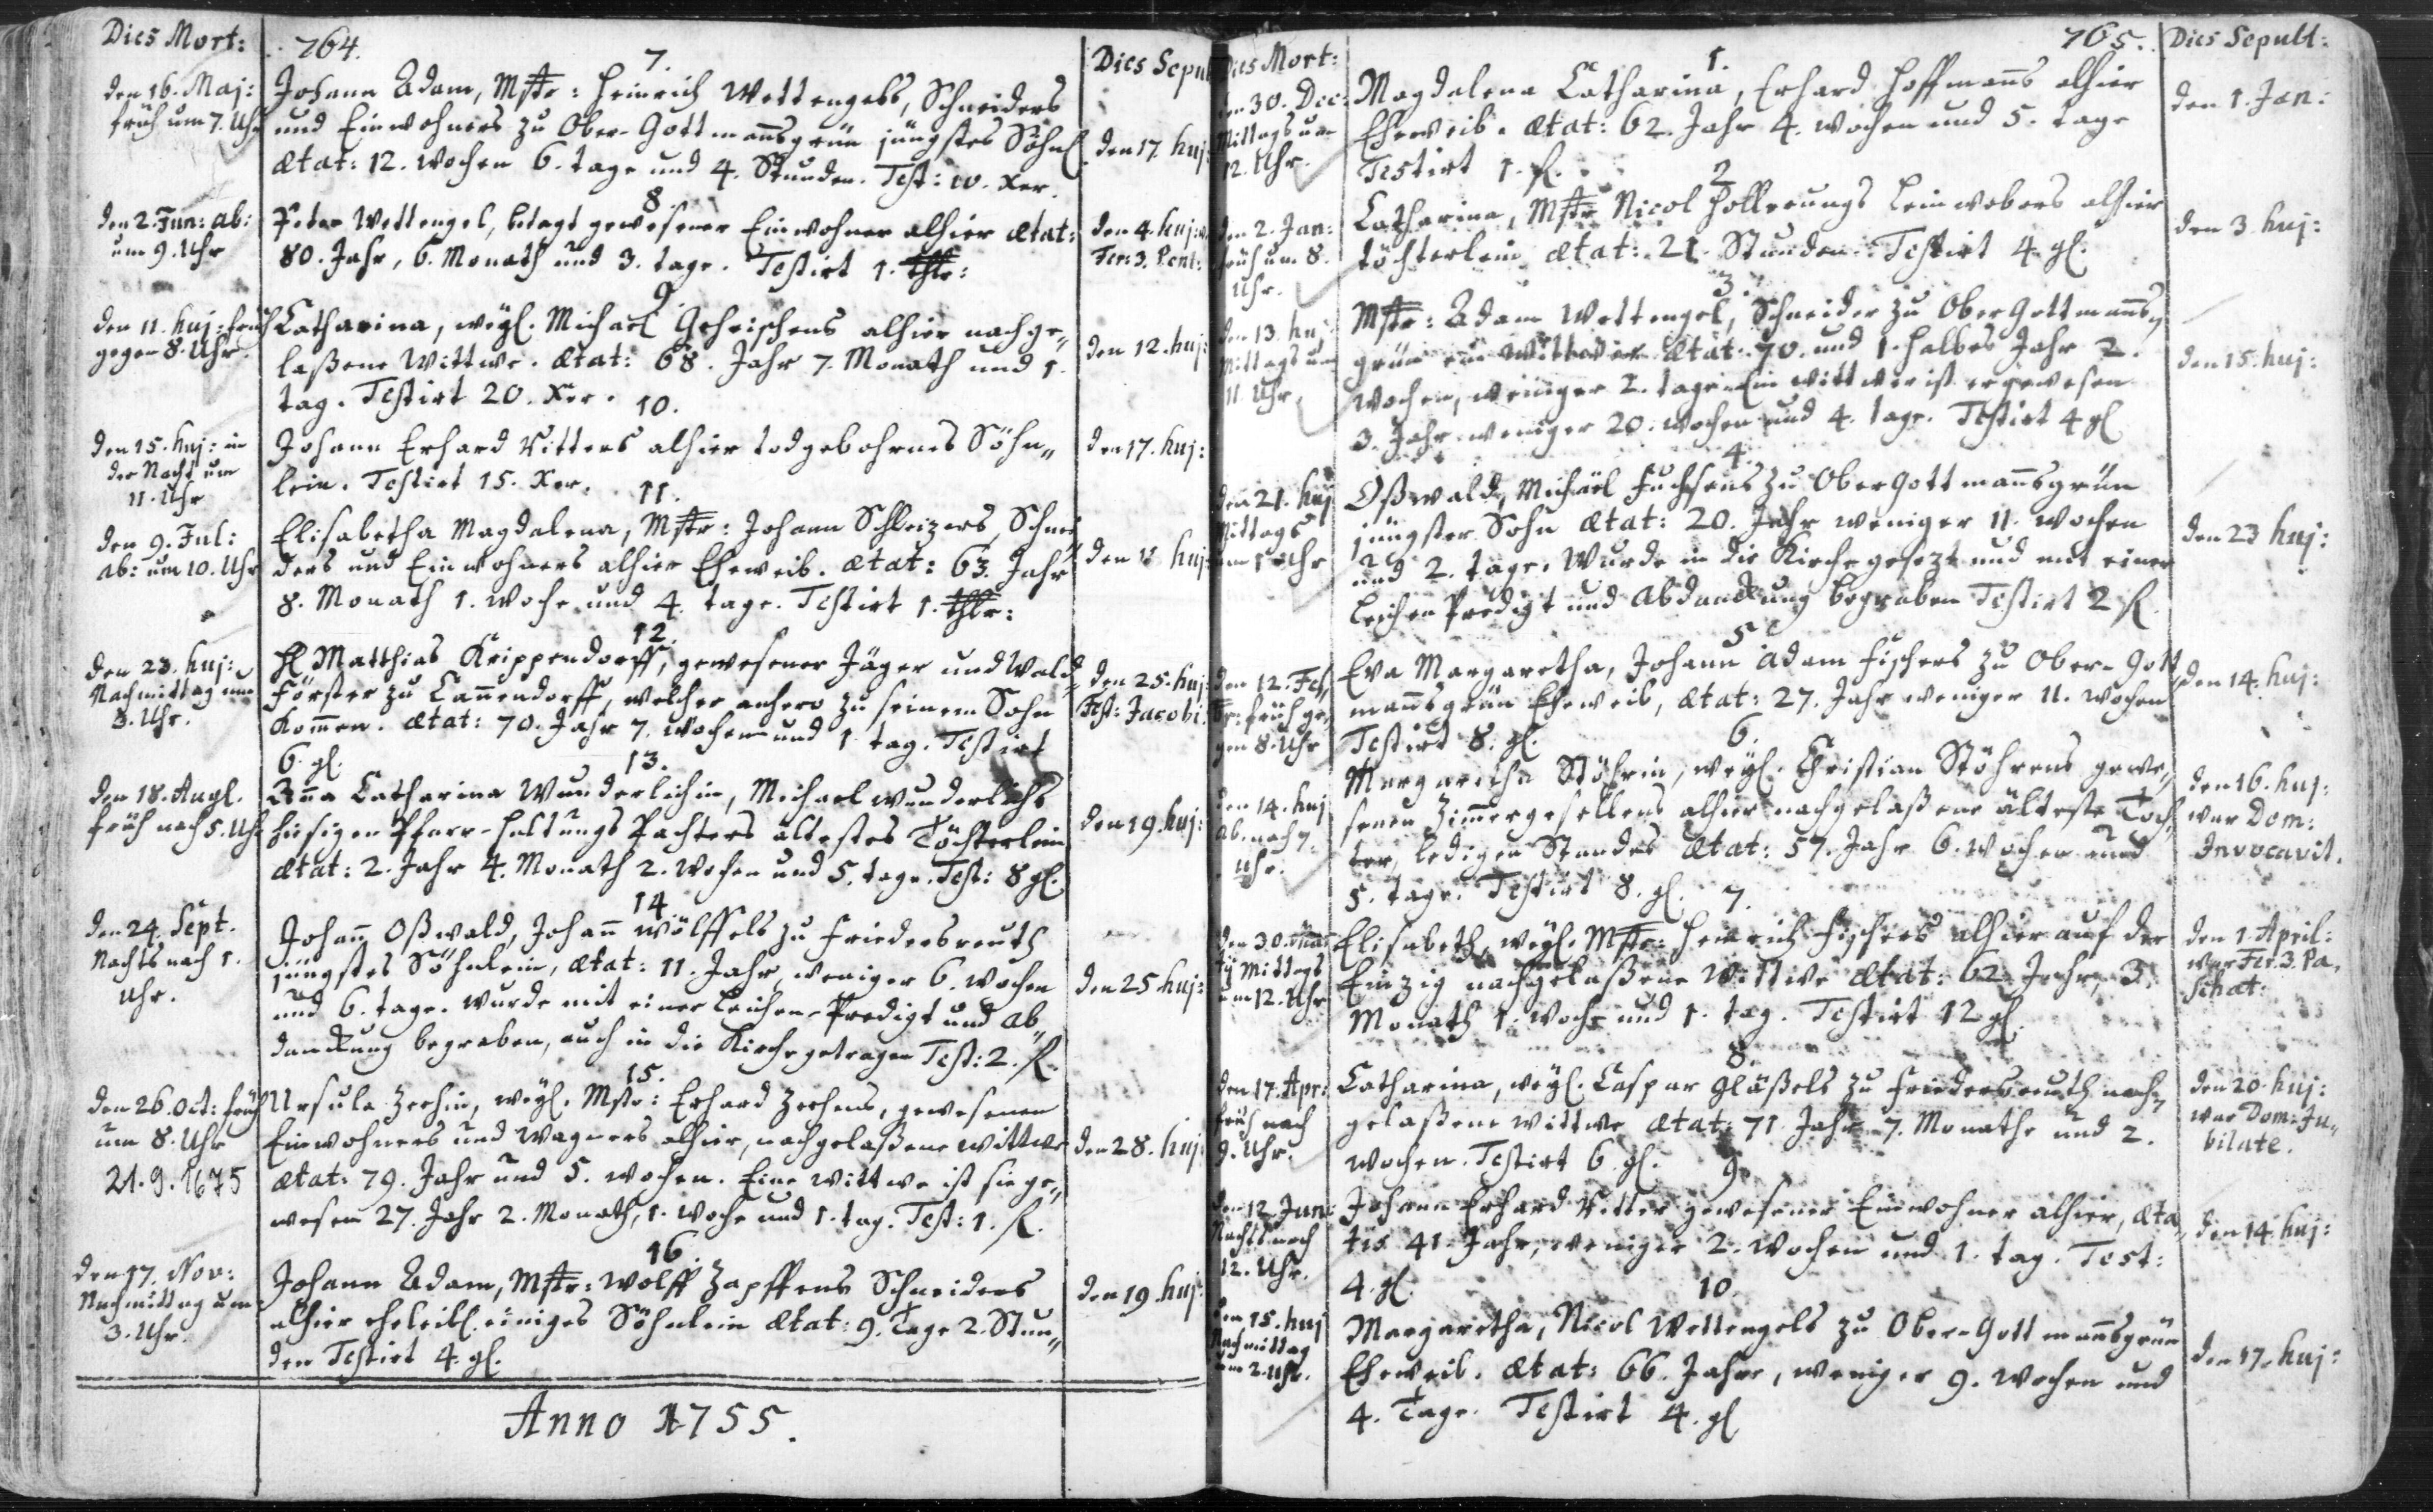 Dies Mort:
764.
Dies Sepul
7.
den 16. Maj:
früh um 7. Uhr
Johann Adam, Mstr: Heinrich Wettengels, Schneiders
und Einwohners zu Ober-Gottmannsgrün jüngstes Söhnl.
ætat: 12. Wochen 6. tage und 4. Stunden. Test: 10. Xer.
den 17. huj:
8.
den 2. Jun: ab:
um 9. Uhr
Peter Wettengel, betagt gewesener Einwohner alhier ætat:
80. Jahr, 6. Monath und 3. tage. Testirt 1. thlr:
den 4. huj:
Fer: 3. Pent:
9.
den 11. huj: früh
gegen 8. Uhr.
Catharina, weyl. Michael Gehrischens alhier nachge-
laßene Wittwe. ætat: 68. Jahr 7. Monath und 1.
tag. Testirt 20. Xer.
den 12. huj:
10.
den 15. huj: in
der Nacht um
11. Uhr
Johann Erhard Ritters alhier todgebohrnes Söhn-
lein. Testirt 15. Xer.
den 17. huj:
11.
den 9. Jul:
ab: um 10. Uhr
Elisabetha Magdalena, Mstr: Johann Schleizers, Schnei
ders und Einwohners alhier Eheweib. ætat: 63. Jahr
8. Monath 1. Woche und 4. tage. Testirt 1. thlr:
den huj:
12.
den 23. huj:
Nachmittag um
3. Uhr.
H. Matthias Krippendorff, gewesener Jäger und Wald-
Förster zu Tannendorff, welcher anhero zu seinem Sohn
kommen. ætat: 70. Jahr 7. Wochen und 1. tag. Testirt
6. gl.
den 25. huj:
Fest: Jacobi.
13.
den 18. Augl.
früh nach 5. Uhr
Anna Catharina Wunderlichin, Michael Wunderlichs
hiesigen Pfarr-Haltungs Pachters ältestes Töchterlein
ætat: 2. Jahr 4. Monath 2. Wochen und 5. tage. Test: 8 gl.
den 19. huj:
14.
den 24. Sept.
Nachts nach 1.
Uhr.
Johann Oßwald, Johann Wölffels zu Friedersreuth
jüngstes Söhnlein, ætat: 11. Jahr, weniger 6. Wochen
und 6. tage. wurde mit einer Leichen-Predigt und Ab-
danckung begraben, auch in die Kirche getragen Test: 2. fl.
den 25. huj:
15.
den 26. Oct: früh
um 8. Uhr
21. 9. 1675
Ursula Zechin, weyl. Mstr: Erhard Zechens, gewesenen
Einwohners und Wagners alhier, nachgelaßene Wittwe
ætat: 79. Jahr und 5. Wochen. Eine Wittwe ist sie ge-
wesen 27. Jahr 2. Monath, 1. Woche und 1. tag. Test: 1. fl.
den 28. huj:
16.
den 17. Nov:
Nachmittag um
3. Uhr.
Johann Adam, Mstr: Wolff Zapffens Schneiders
alhier eheleibl. einiges Söhnlein ætat: 9. Tage 2. Stun-
den Testirt 4. gl.
den 19. huj:
Anno 1755.
Dies Mort:
765.
Dies Sepult:
1.
den 30. Dec:
Mittags um
12. Uhr.
Magdalena Catharina, Erhard Hoffmanns alhier
Eheweib. ætat: 62. Jahr 4. Wochen und 5. tage
Testirt 1. fl.
den 1. Jan:
2
den 2. Jan:
früh um 8.
Uhr.
Catharina, Mstr Nicol Hollerungs Leinwebers alhier
töchterlein ætat: 21. Stunden. Testirt 4. gl.
den 3. huj:
3.
den 13. huj
Mittags um
11. Uhr.
Mstr: Adam Wettengel, Schneider zu Ober Gottmanns-
grün ein Wittwer ætat: 70. und 1. halbes Jahr 2.
Wochen, weniger 2. tage. Ein Wittwer ist er gewesen
3. Jahr weniger 20. Wochen und 4. tage. Testirt 4 gl
den 15. huj:
4.
den 21. huj
Mittags
um 1 Uhr
Oßwald, Michael Fuchsens zu Ober Gottmannsgrün
jüngster Sohn ætat: 20. Jahr weniger 11. Wochen
und 2. tage. Wurde in die Kirche gesezt und mit einer
Leichen Predigt und Abdanckung begraben Testirt 2 fl.
den 23 huj:
5.
den 12. Feb
br: früh ge-
gen 8. Uhr
Eva Margaretha, Johann Adam Fischers zu Ober-Gott-
mannsgrün Eheweib, ætat: 27. Jahr weniger 11. Wochen
Testirt 8. gl.
den 14. huj:
6.
den 14. huj
ab. nach 7.
Uhr.
Margaretha Stöhrin, weyl. Christian Stöhrens gewe-
senen Zimmergesellens alhier nachgelaßene älteste Toch-
ter, ledigen Standes ætat: 57. Jahr 6. Wochen und
5. tage. Testirt 8. gl.
den 16. huj:
war Dom:
Invocavit.
7.
den 30. Mar
tij Mittags
um 12. Uhr
Elisabeth, weyl. Mstr: Heinrich Fischers alhier auf der
Einzig nachgelaßene Wittwe ætat: 62. Jahr, 3.
Monath 1. Woche und 1. tag. Testirt 12 gl.
den 1. April:
war Fer. 3. Pa-
schat:
8.
den 17. Apr:
früh nach
9. Uhr.
Catharina, weyl. Caspar Gläßels zu Friedersreuth nach-
gelaßene Wittwe ætat: 71 Jahr 7. Monathe und 2.
Wochen. Testirt 6. gl.
den 20. huj:
war Dom: Ju-
bilate.
9
den 12. Jun:
Nachts nach
12. Uhr.
Johann Erhard Ritter gewesener Einwohner alhier, æta-
tis 41. Jahr, weniger 2. Wochen und 1. tag. Test:
4. gl.
den 14. huj:
10.
den 15. huj
Nachmittag
um 2. Uhr.
Margaretha, Nicol Wettengels zu Ober-Gottmannsgrün
Eheweib. ætat: 66. Jahre, weniger 9. Wochen und
4. Tage. Testirt 4. gl
den 17. huj: